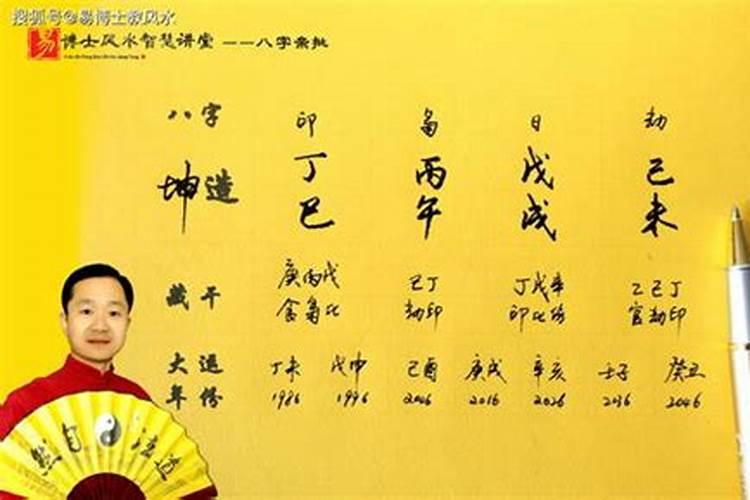 搜狐号@易博士教风水
易 博士风水智慧讲堂 ——八字亲批
八字 印 枭 日 劫
坤造 丁巳 丙午 戊戌 己未
藏干 庚丙戊 己丁 丁戊辛 乙己丁
食枭比 劫印 印比伤 官劫印
大运 丁未 戊申 己酉 庚戌 辛亥 壬子 癸丑
年份 1986 1996 2016 2026 2036 2046
道法自然